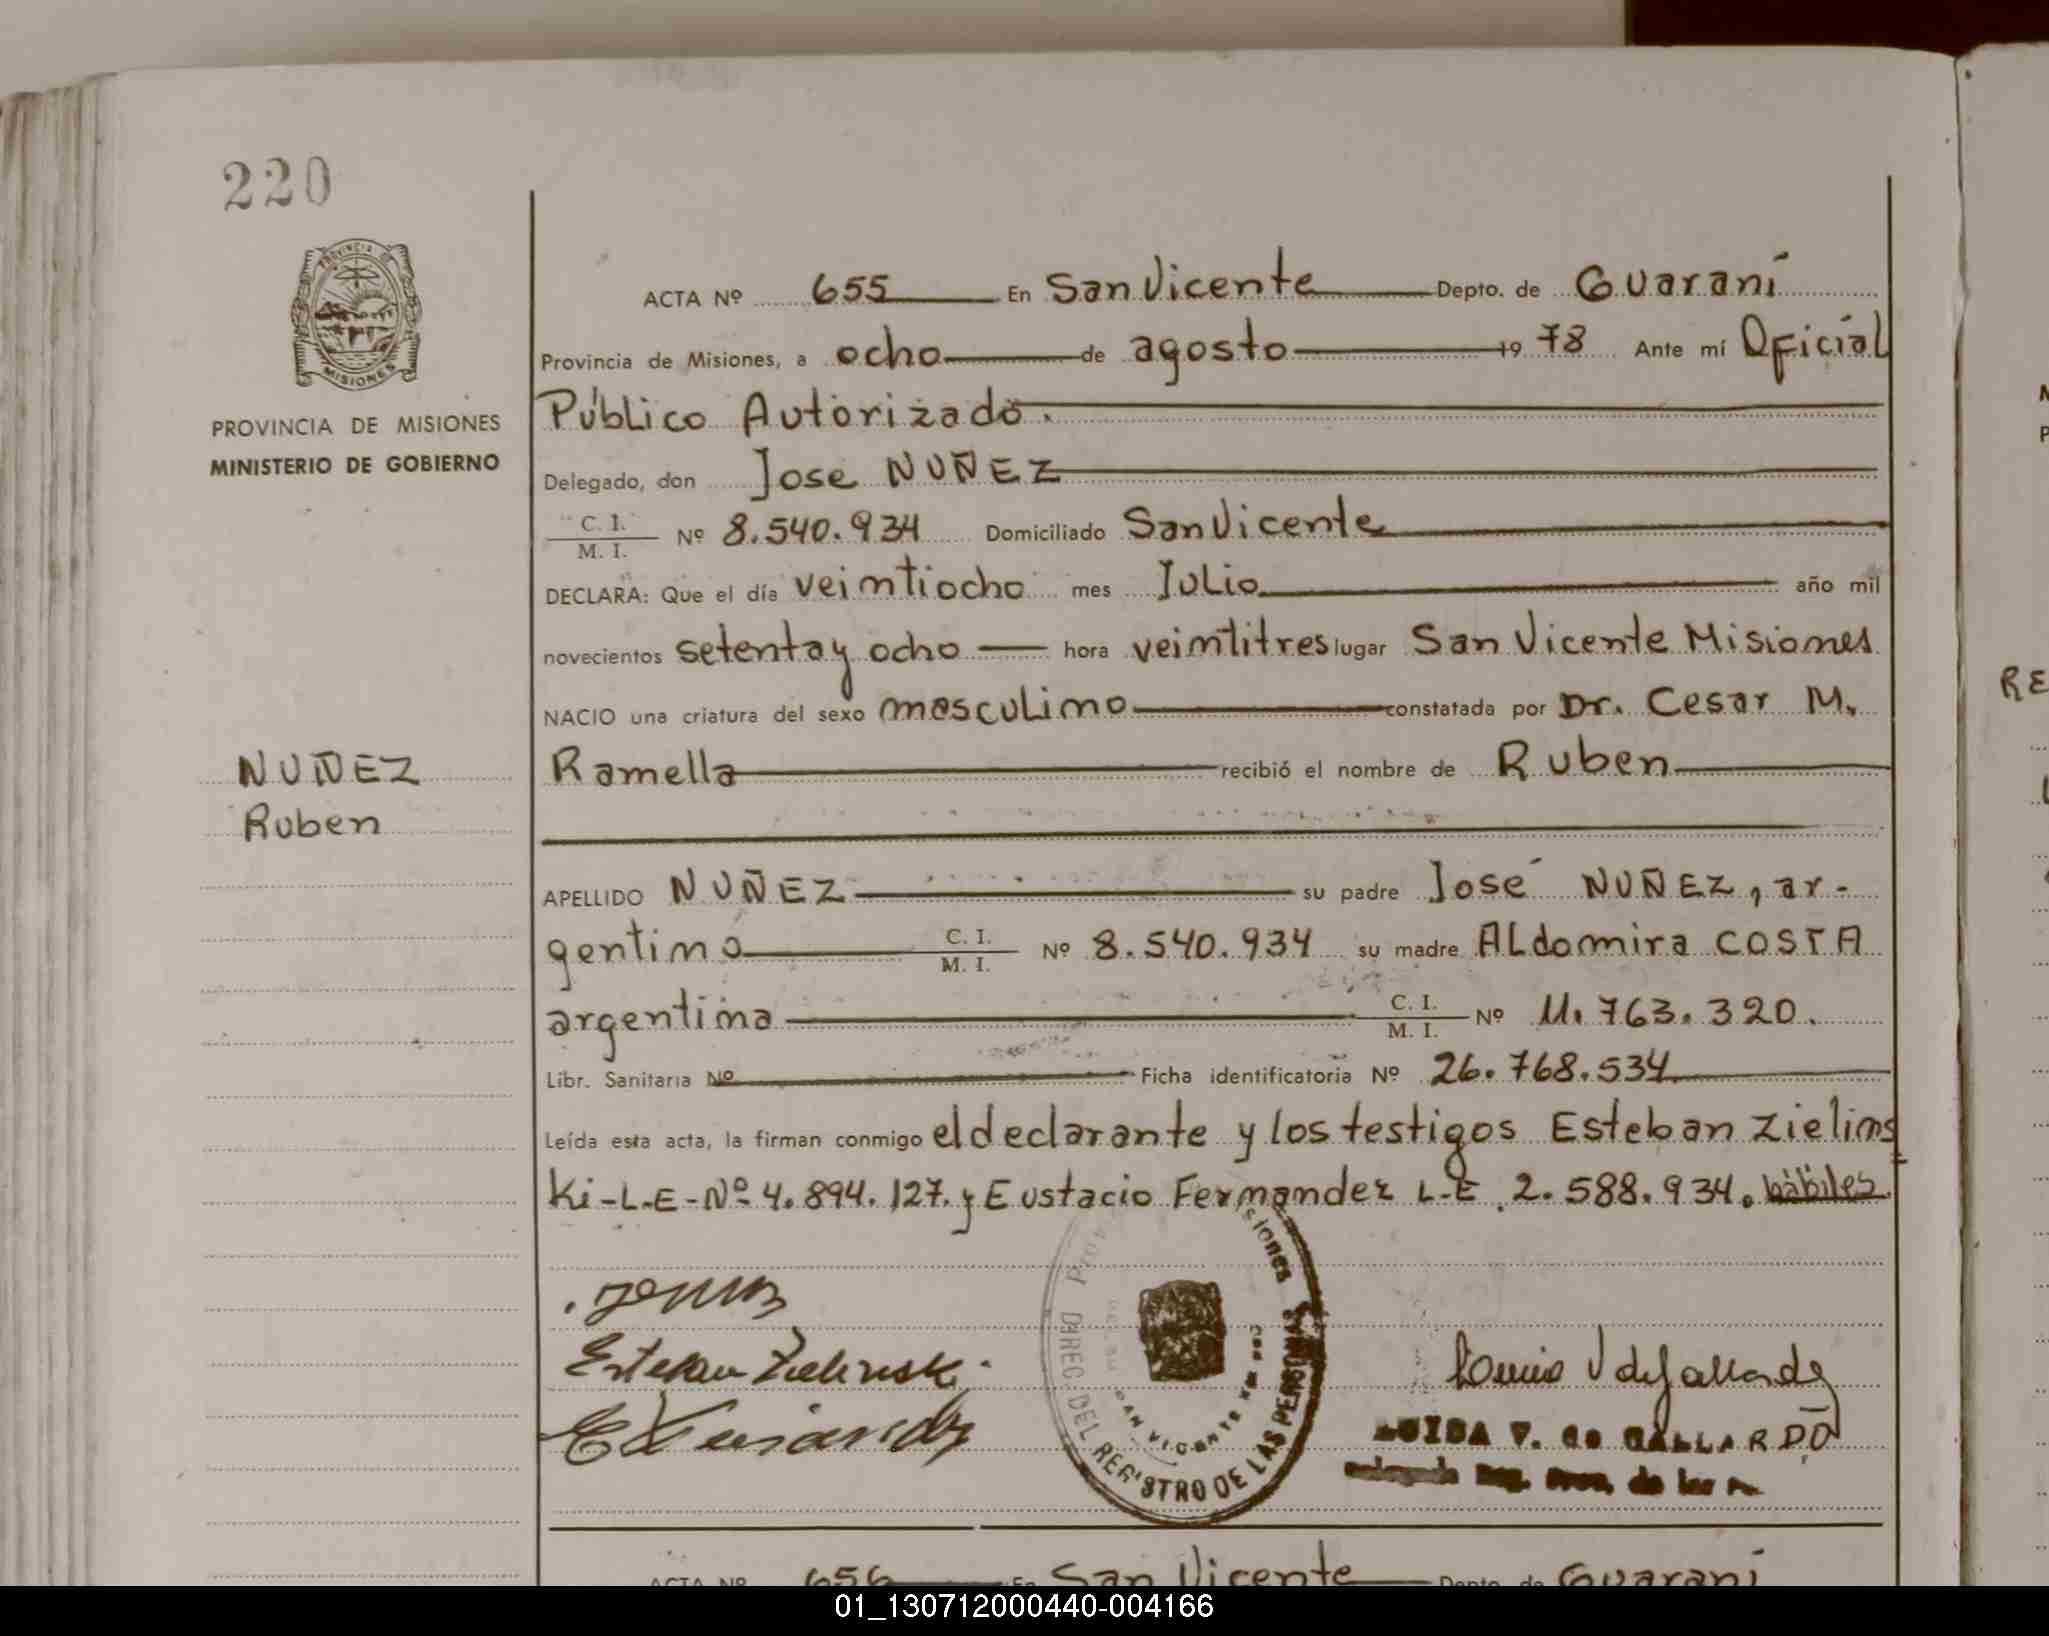 220
PROVINCIA DE
MISIONES
PROVINCIA DE MISIONES
MINISTERIO DE GOBIERNO
ACTA Nº 655 En San Vicente Depto. de Guaraní
Provincia de Misiones, a ocho de agosto 1978 Ante mí Oficial
Público Autorizado.
Delegado, don Jose NUÑEZ
C. I. / M. I. Nº 8.540.934 Domiciliado San Vicente
DECLARA: Que el día veimtiocho mes Julio año mil
novecientos setenta y ocho hora veimtitres lugar San Vicente Misiomes
NACIO una criatura del sexo masculimo constatada por Dr. Cesar M.
NUÑEZ
Ramella recibió el nombre de Ruben
Ruben
APELLIDO NUÑEZ su padre José NUÑEZ, ar-
gentimo C. I. / M. I. Nº 8.540.934 su madre ALdomira COSTA
argentima C. I. / M. I. Nº 11.763.320.
Libr. Sanitaria Nº Ficha identificatoria Nº 26.768.534
Leída esta acta, la firman conmigo el declarante y los testigos Esteban Zielims
Ki-L-E-Nº 4.894.127. y Eustacio Fermandez L-E 2.588.934. hábiles
Esteban Zielinski
DIREC. DEL REGISTRO DE LAS PERSONAS
SAN VICENTE
LUISA V. de GALLARDO
ACTA Nº 656 En San Vicente Depto. de Guaraní
RE
01_130712000440-004166